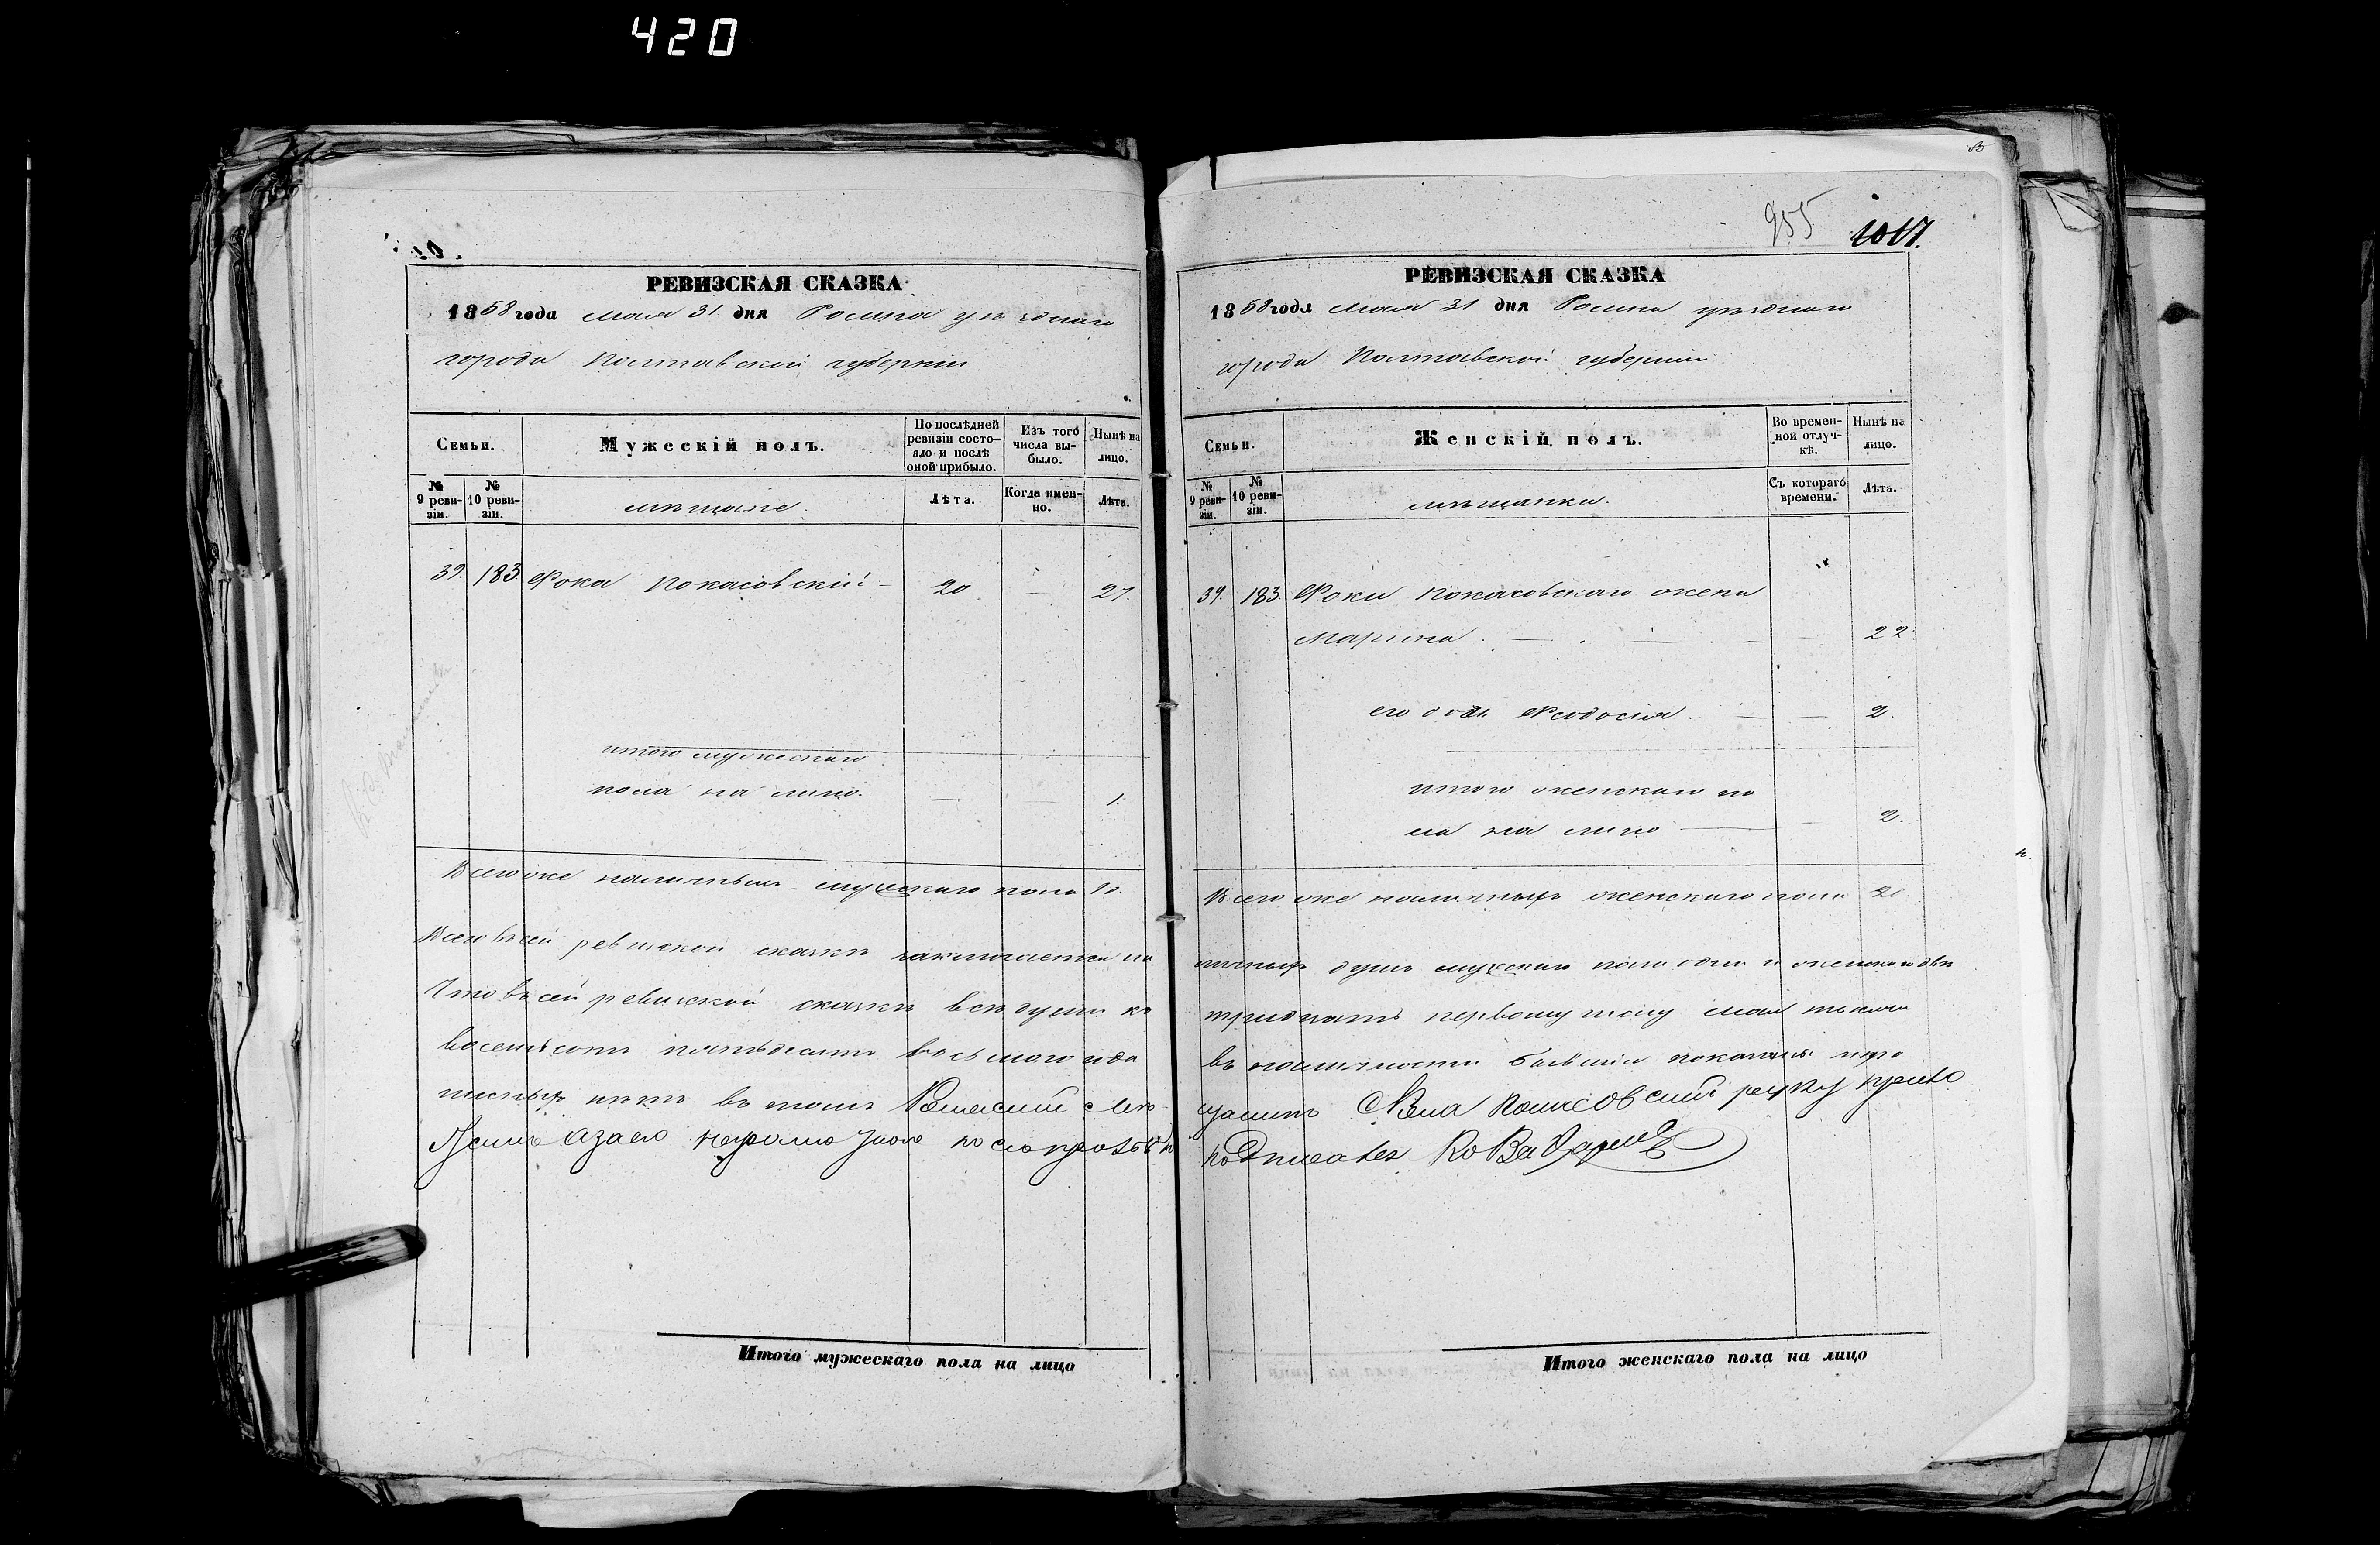 420
РЕВИЗСКАЯ СКАЗКА
1858 года мая 31 дня Ромна уѣзднаго
города Полтавской губерніи
Семьи.
Мужескій полъ.
По послѣдней ревизіи состо-
яло и послѣ
оной прибыло.
Изъ того
числа вы-
было.
Нынѣ на
лицо.
№
9 реви-
зіи.
№
10 реви-
зіи.
мѣщане.
Лѣта.
Когда имен-
но.
Лѣта.
39. 183. Фока Покасовскій - 20 — 27.
итого мужескаго
пола на лицо. — 1.
Всего же наличныхъ мужескаго пола 1.
Всего въ сей ревизской сказкѣ заключается на
Что въ сей ревизской сказкѣ всѣ души къ
восемьсотъ пятьдесятъ восьмого года
въ томъ
Итого мужескаго пола на лицо
955 1017.
РЕВИЗСКАЯ СКАЗКА
1858 года мая 31 дня Ромна уѣзднаго
города Полтавской губерніи
Семьи.
Женскій полъ.
Во времен-
ной отлуч-
кѣ.
Нынѣ на
лицо.
№
9 реви-
зіи.
№
10 реви-
зіи.
мѣщанки.
Съ котораго
времени.
Лѣта.
39. 183. Фоки Покасовскаго жена
Марина. — 22.
его дочь Феодосія. — 2.
итого женскаго по
ла на лицо — 2.
Всего же наличныхъ женскаго пола 2.
личныхъ душъ мужеска пола одна и женска двѣ
тридцать первому числу мая тысяча
въ наличности бывшія показаны
Итого женскаго пола на лицо